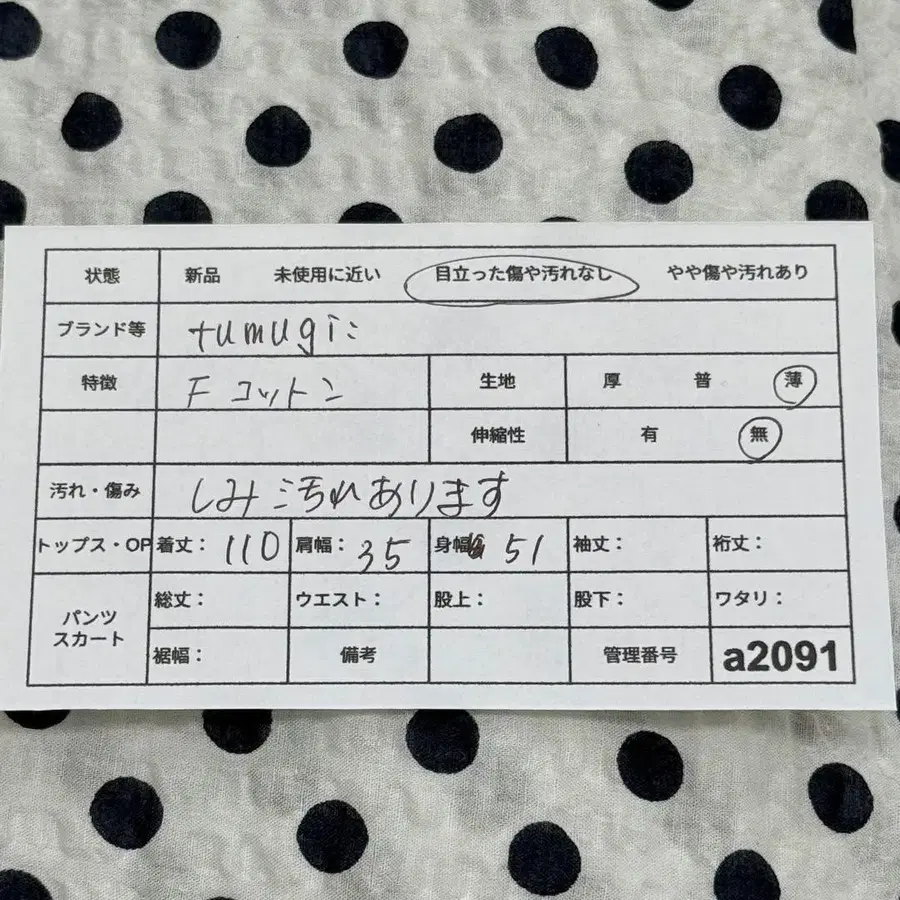 状態 新品 未使用に近い 目立った傷や汚れなし やや傷や汚れあり
ブランド等 tumugi:
特徴 F コットン 生地 厚 普 薄
伸縮性 有 無
汚れ・傷み しみ汚れあります
トップス・OP 着丈： 110 肩幅： 35 身幅 51 袖丈： 裄丈：
パンツ スカート 総丈： ウエスト： 股上： 股下： ワタリ：
裾幅： 備考 管理番号 a2091